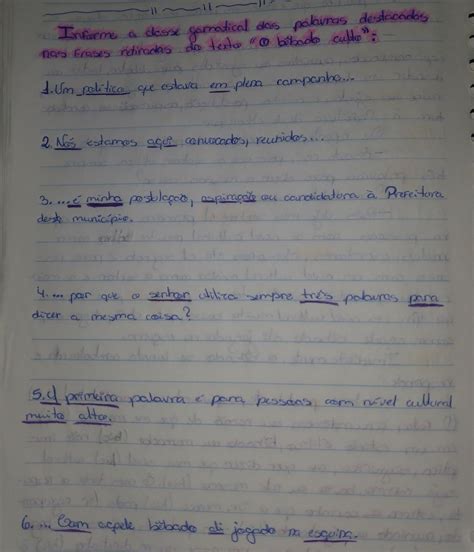 Informe a classe gamatical das palavras destacadas
nas frases retiradas do texto "O bêbado culto":
1. Um político, que estava em plena campanha...
2. Nós estamos aqui convocados, reunidos...
3. ... é minha postulação, aspiração ou candidatura à Prefeitura
deste município.
4. ... por que o senhor utiliza sempre três palavras para
dizer a mesma coisa?
5. A primeira palavra é para pessoas com nível cultural
muito alto.
6. ... Com aquele bêbado ali jogado na esquina.